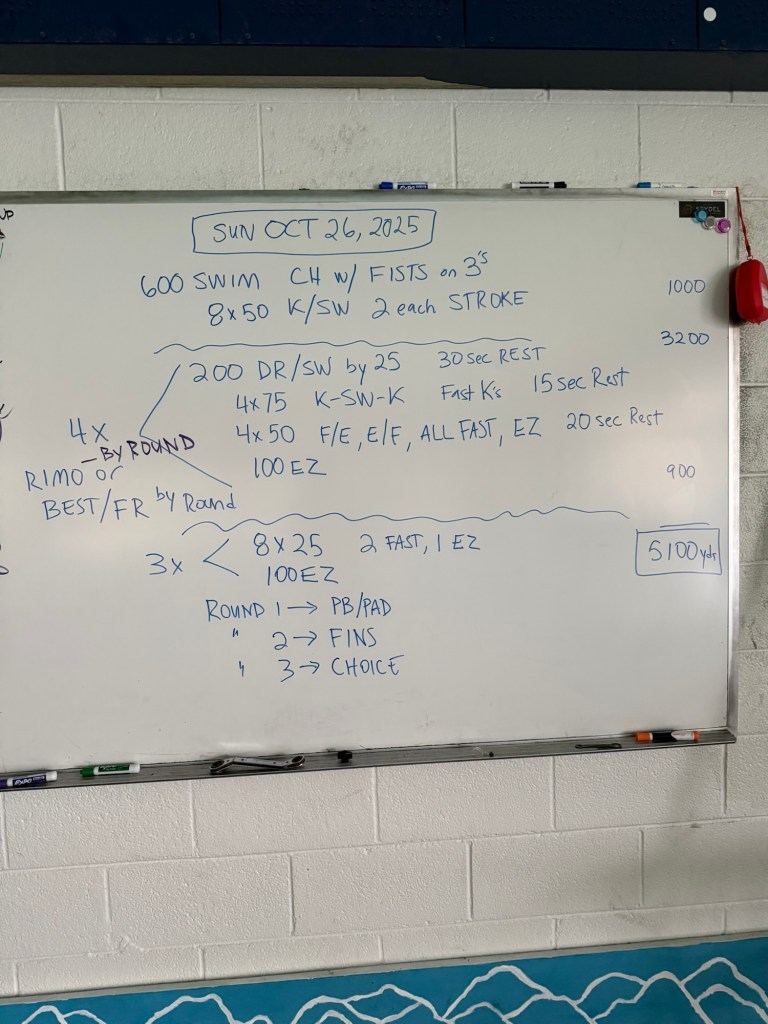 SUN OCT 26, 2025
600 SWIM CH W/ FISTS on 3's
8x50 K/SW 2 each STROKE
1000
3200
200 DR/SW by 25 30 sec REST
4x75 K-SW-K Fast K's 15 sec Rest
4x50 F/E, E/F, ALL FAST, EZ 20 sec Rest
100 EZ
4x
- BY ROUND
RIMO or
BEST/FR by Round
900
3x < 8x25 2 FAST, 1 EZ
100 EZ
5100 yds
ROUND 1 → PB/PAD
" 2 → FINS
" 3 → CHOICE